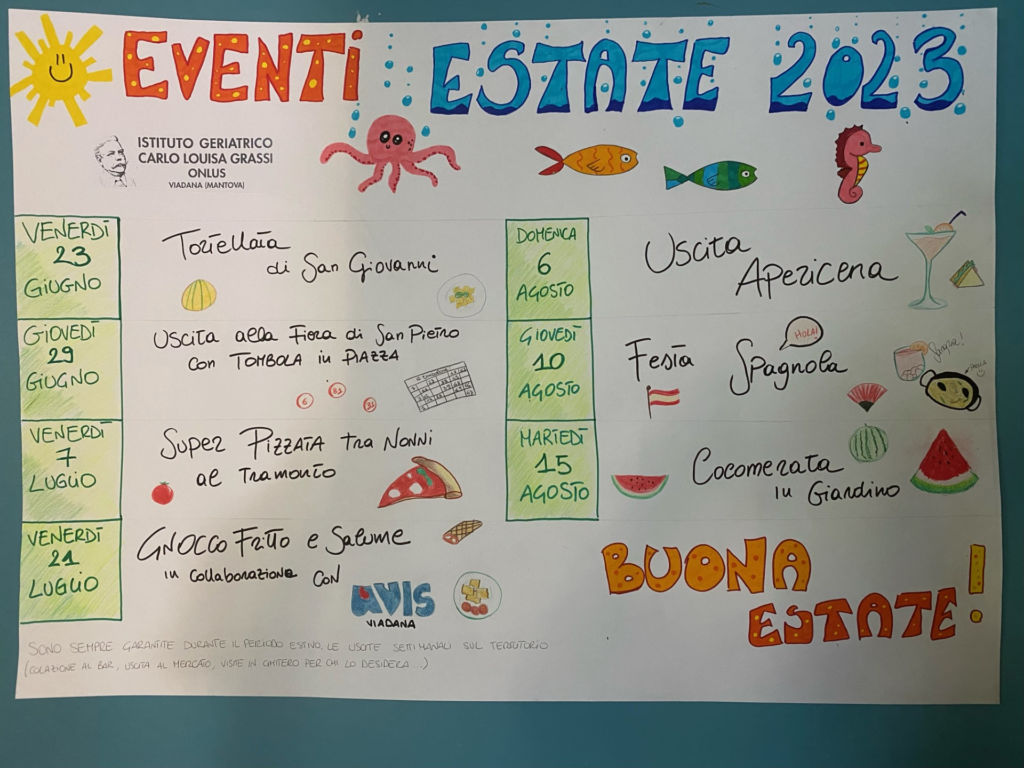 EVENTI ESTATE 2023
ISTITUTO GERIATRICO
CARLO LOUISA GRASSI
ONLUS
VIADANA (MANTOVA)
VENERDÌ
23
GIUGNO
Tortellata
di San Giovanni
GIOVEDÌ
29
GIUGNO
Uscita alla Fiera di San Pietro
con TOMBOLA in PIAZZA
6
83
31
VENERDÌ
7
LUGLIO
Super PIZZATA tra NONNI
al tramonto
VENERDÌ
21
LUGLIO
GNOCCO Fritto e Salume
in collaborazione con
AVIS
VIADANA
DOMENICA
6
AGOSTO
Uscita
Apericena
GIOVEDÌ
10
AGOSTO
Festa Spagnola
HOLA!
Sangria!
MARTEDÌ
15
AGOSTO
Cocomerata
in Giardino
BUONA
ESTATE!
SONO SEMPRE GARANTITE DURANTE IL PERIODO ESTIVO, LE USCITE SETTIMANALI SUL TERRITORIO
(COLAZIONE AL BAR, USCITA AL MERCATO, VISITE IN CIMITERO PER CHI LO DESIDERA...)